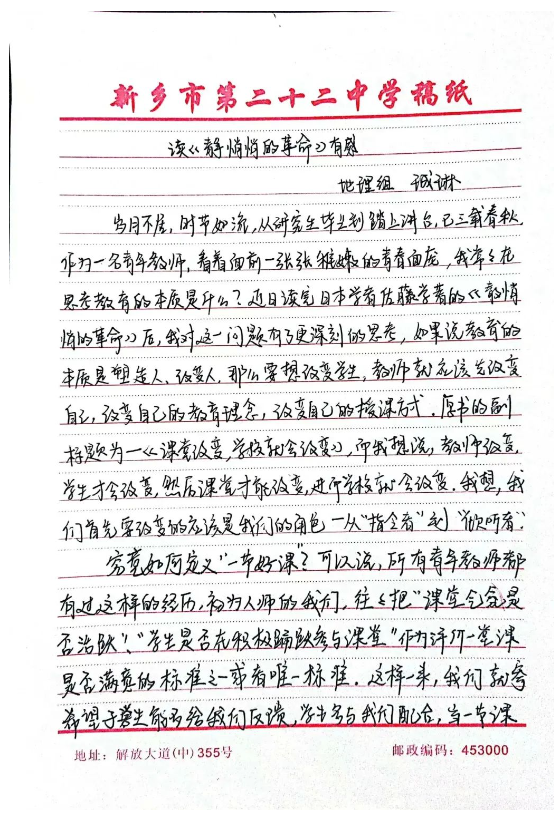 新乡市第二十二中学稿纸
读《静悄悄的革命》有感
地理组
岁月不居，时节如流，从研究生毕业到踏上讲台，已三载春秋，
作为一名青年教师，看着面前一张张稚嫩的青春面庞，我常々在
思考教育的本质是什么？近日读完日本学者佐藤学著的《静悄
悄的革命》后，我对这一问题有了更深刻的思考，如果说教育的
本质是塑造人、改变人，那么要想改变学生，教师就应该先改变
自己，改变自己的教育理念，改变自己的授课方式．原书的副
标题为—《课堂改变，学校就会改变》，而我想说，教师改变，
学生才会改变，然后课堂才能改变，进而学校就会改变．我想，我
们首先要改变的应该是我们的角色—从“指令者”到“倾听者”．
究竟如何定义“一节好课”？可以说，所有青年教师都
有过这样的经历，初为人师的我们，往々把“课堂气氛是
否活跃”、“学生是否在积极踊跃参与课堂”作为评价一堂课
是否满意的标准之一或者唯一标准．这样一来，我们就会
希望于学生能多给我们反馈，学生多与我们配合，当一节课
地址：解放大道(中)355号
邮政编码：453000